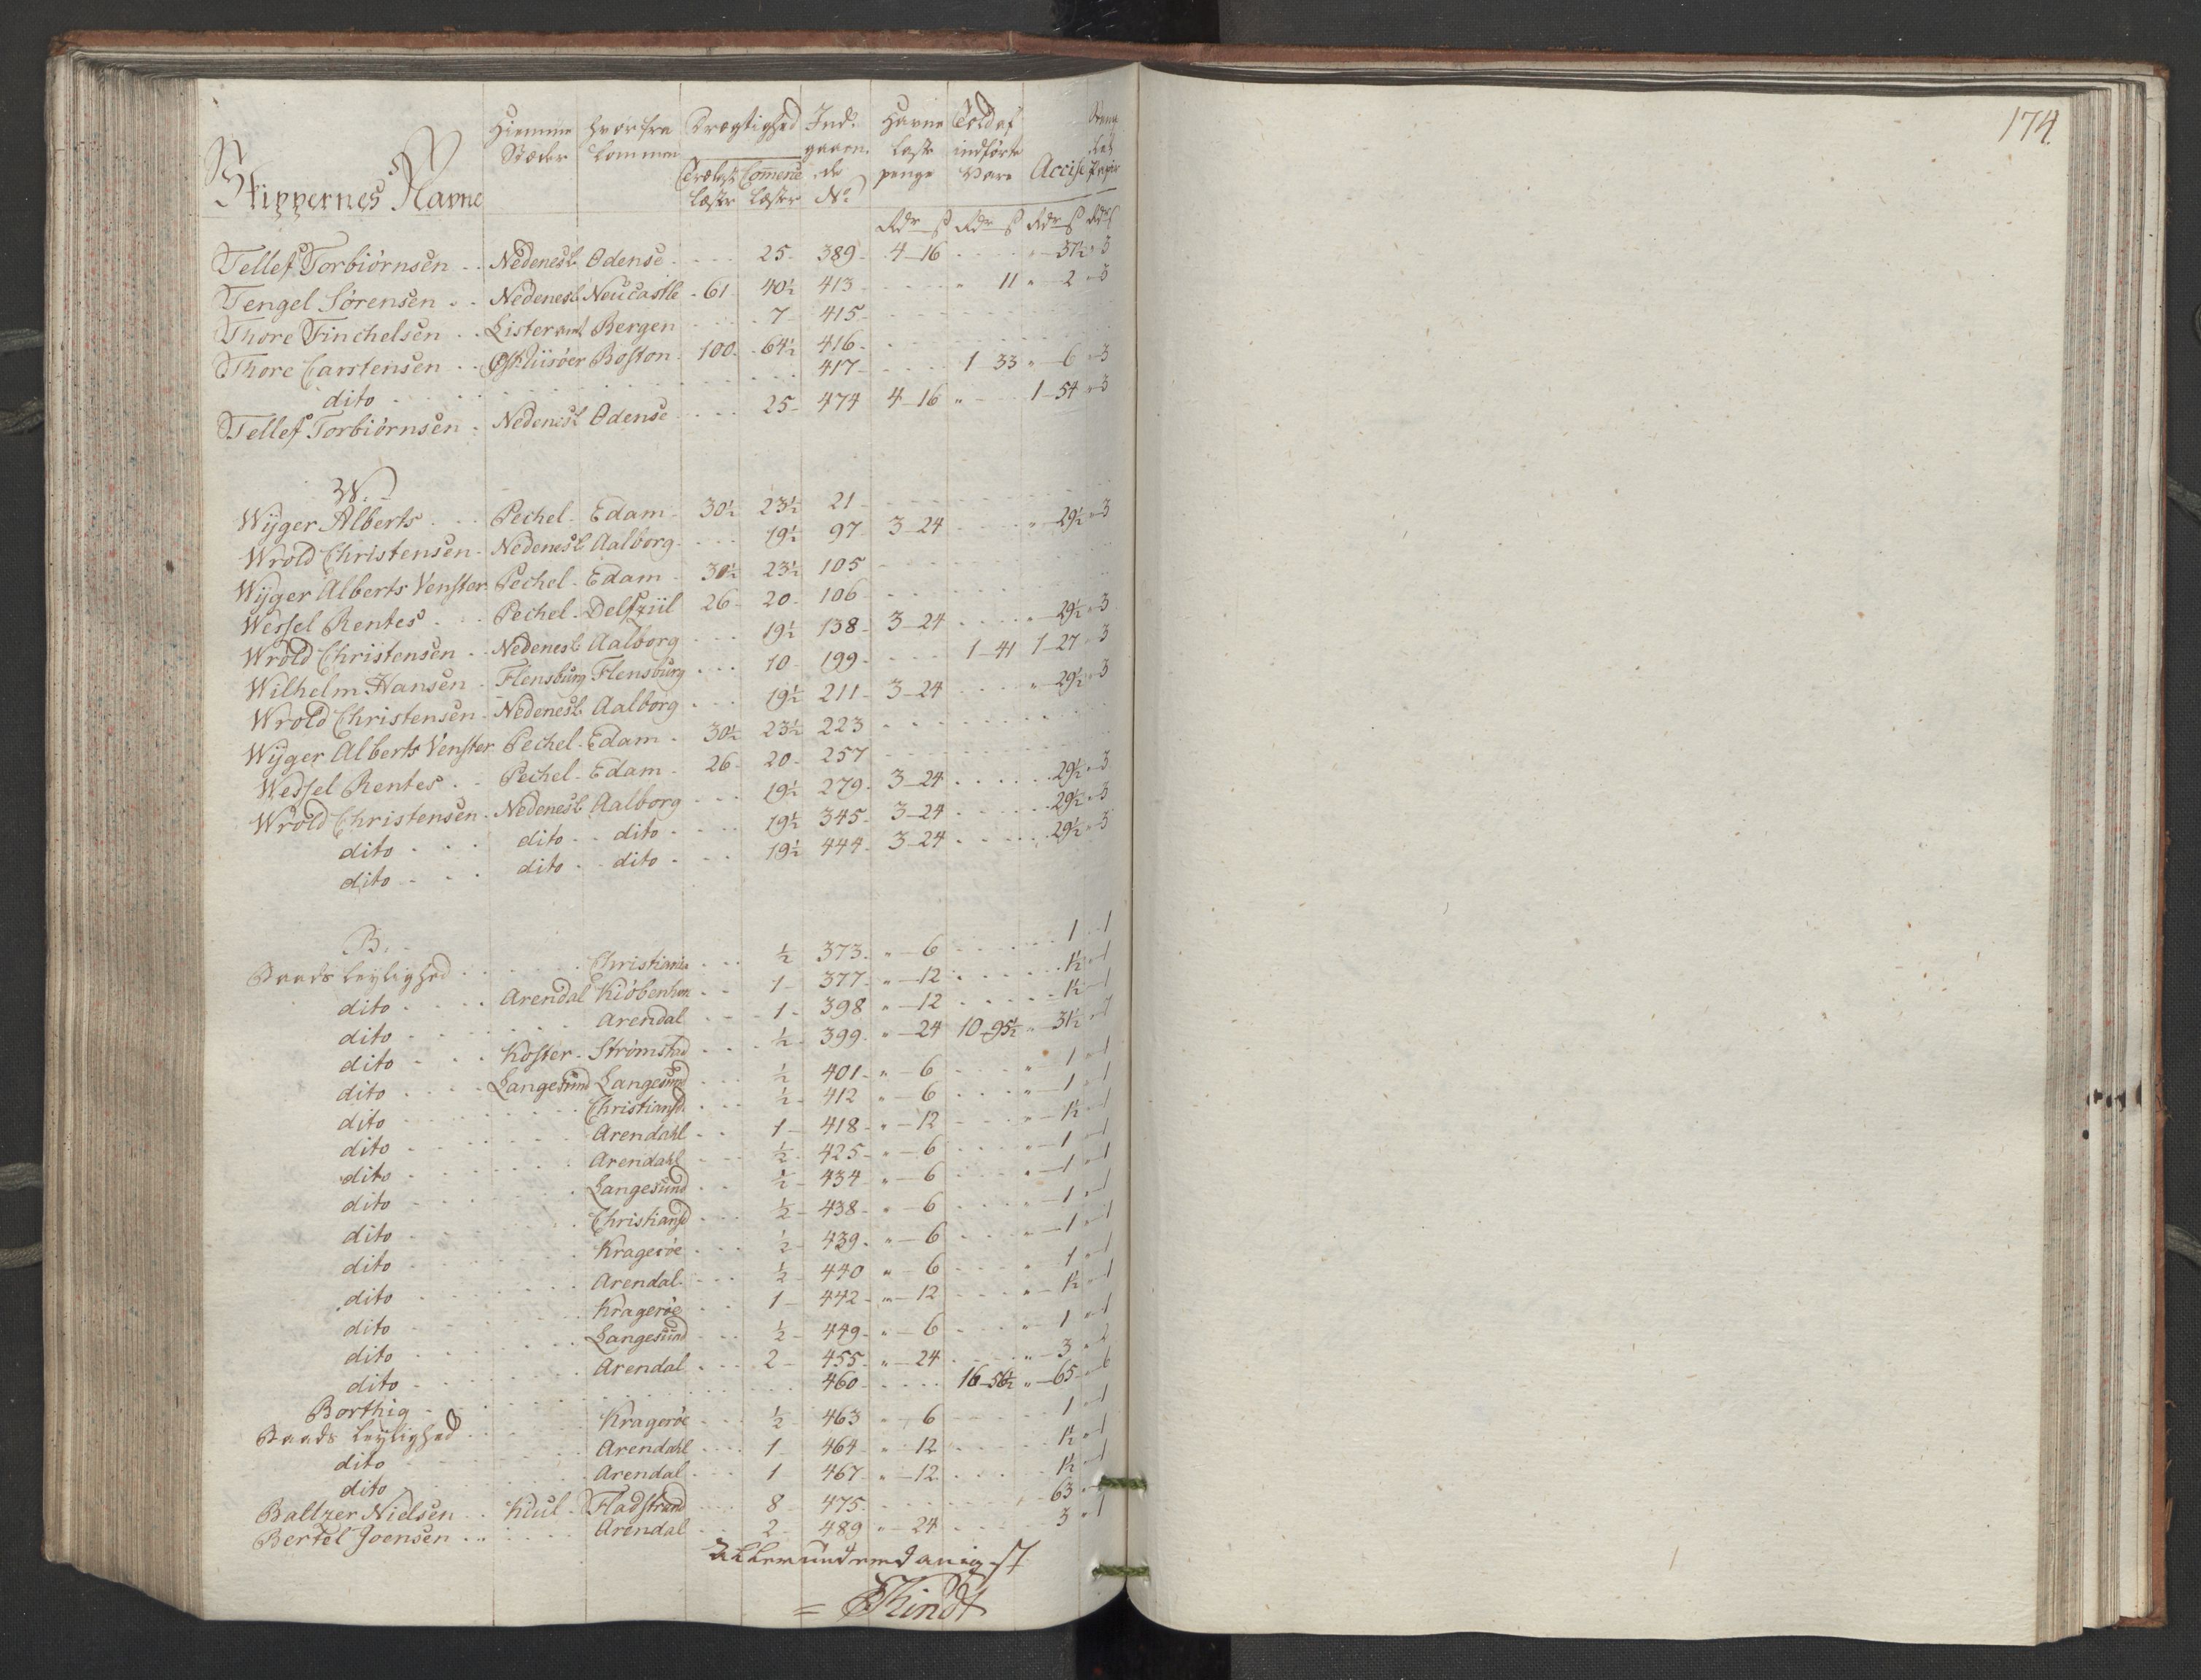 174.
Skippernes Navne Hiemme Stæder Hvorfra kommen Drægtighed Trælast Læster Comerse Læster Ind- gaaen- de No Havne Laste penge Told af indførte Vare Accise
Rdr ß Rdr ß Rdr ß
Tellef Torbiørnsen Nedenesl. Odense 25 389 4 16 " 37½ " 3
Tengel Sørensen Nedenesl. Neucastle 61 40½ 413 " 11 " 2 " 3
Thore Finchelsen Listeramt Bergen 7 415
Thore Carstensen Østriisøer Boston 100 64½ 416
dito 417 1 33 " 6 " 3
Tellef Torbiørnsen Nedenesl. Odense 25 474 4 16 " 1 54 " 3
W.
Wijger Alberts Pechel Edam 30½ 23½ 21
Wrold Christensen Nedenesl. Aalborg 19½ 97 3 24 " 29½ " 3
Wijger Alberts Venster Pechel Edam 30½ 23½ 105
Wessel Rentes Pechel Delfziil 26 20 106
Wrold Christensen Nedenesl. Aalborg 19½ 138 3 24 " 29½ " 3
Wilhelm Hansen Flensburg Flensburg 10 199 1 41 1 27 " 3
Wrold Christensen Nedenesl. Aalborg 19½ 211 3 24 " 29½ " 3
Wijger Alberts Venster Pechel Edam 30½ 23½ 223
Wessel Rentes Pechel Edam 26 20 257
Wrold Christensen Nedenesl. Aalborg 19½ 279 3 24 29½ " 3
dito dito dito 19½ 345 3 24 29½ " 3
dito dito dito 19½ 444 3 24 29½ " 3
B.
Baads leylighed Christiania ½ 373 " 6 1 1
dito Arendal Kiøbenhvn 1 377 " 12 1½ 1
dito Arendal 1 398 " 12 1½ 1
dito Koster Strømstad ½ 399 " 24 10 95½ " 31½ " 1
dito Langesund Langesund ½ 401 " 6 " 1 " 1
dito Christiansd. ½ 412 " 6 " 1 " 1
dito Arendahl 1 418 " 12 " 1½ " 1
dito Arendahl ½ 425 " 6 " 1 " 1
dito Langesund ½ 434 " 6 " 1 " 1
dito Christiansd ½ 438 " 6 " 1 " 1
dito Kragerøe ½ 439 " 6 " 1 " 1
dito Arendal ½ 440 " 6 " 1 " 1
dito Kragerøe 1 442 " 12 " 1½ " 1
dito Langesund ½ 449 " 6 " 1 " 1
dito Arendal 2 455 " 24 " 3 " 2
Borthig 460 16 56½ " 65 " 6
Baads leylighed Kragerøe ½ 463 " 6 1 " 1
dito Arendahl 1 464 " 12 1½ " 1
dito Arendal 1 467 " 12 1½ " 1
Baltzer Nielsen Kiul Fladstrand 8 475 63
Bertel Joensen Arendal 2 489 " 24 3 " 1
Allerunderdanigst
Kindt